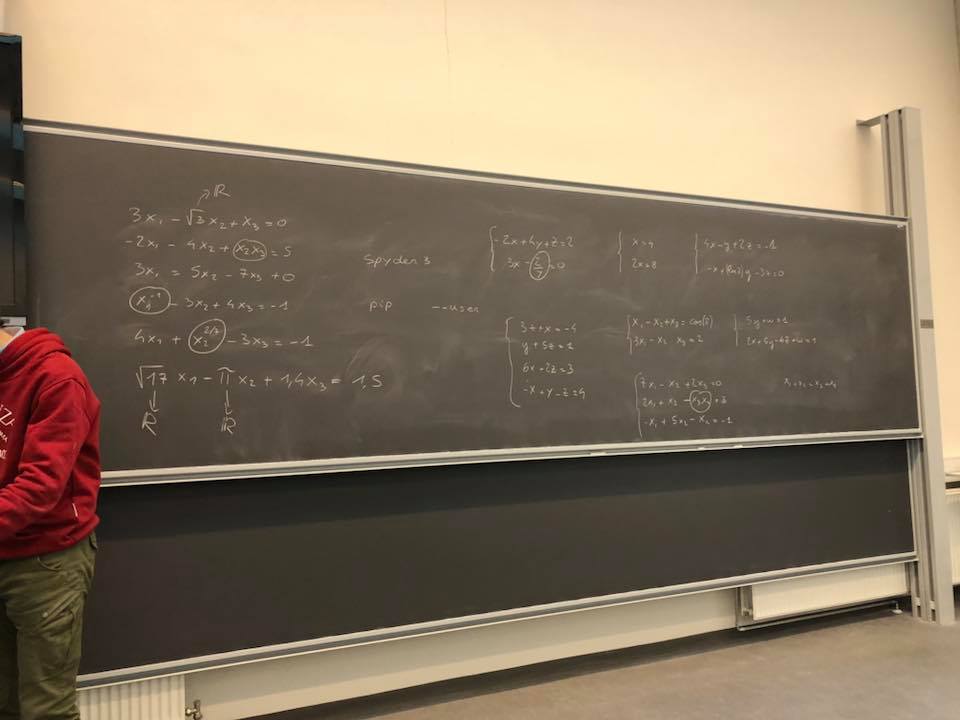 ℝ
3x₁ - √3 x₂ + x₃ = 0
-2x₁ - 4x₂ + x₂x₃ = 5
3x₁ = 5x₂ - 7x₃ + 0
x₁⁻¹ - 3x₂ + 4x₃ = -1
4x₁ + x₂^(2/3) - 3x₃ = -1
√17 x₁ - π x₂ + 1,4x₃ = 1,5
ℝ ℝ
Spyder 3
pip --user
-2x+4y+z=2
3x - 2/7 =0
x=4
2x=8
4x-y+2z=-1
3z+x=-4
y+5z=1
6x+2z=3
-x+y-z=4
x₁-x₂+x₃=
3x₁-x₂ x₃=2
5y+w=1
7x₁-x₂+2x₃=0
-x₁+5x₂-x₂=-1